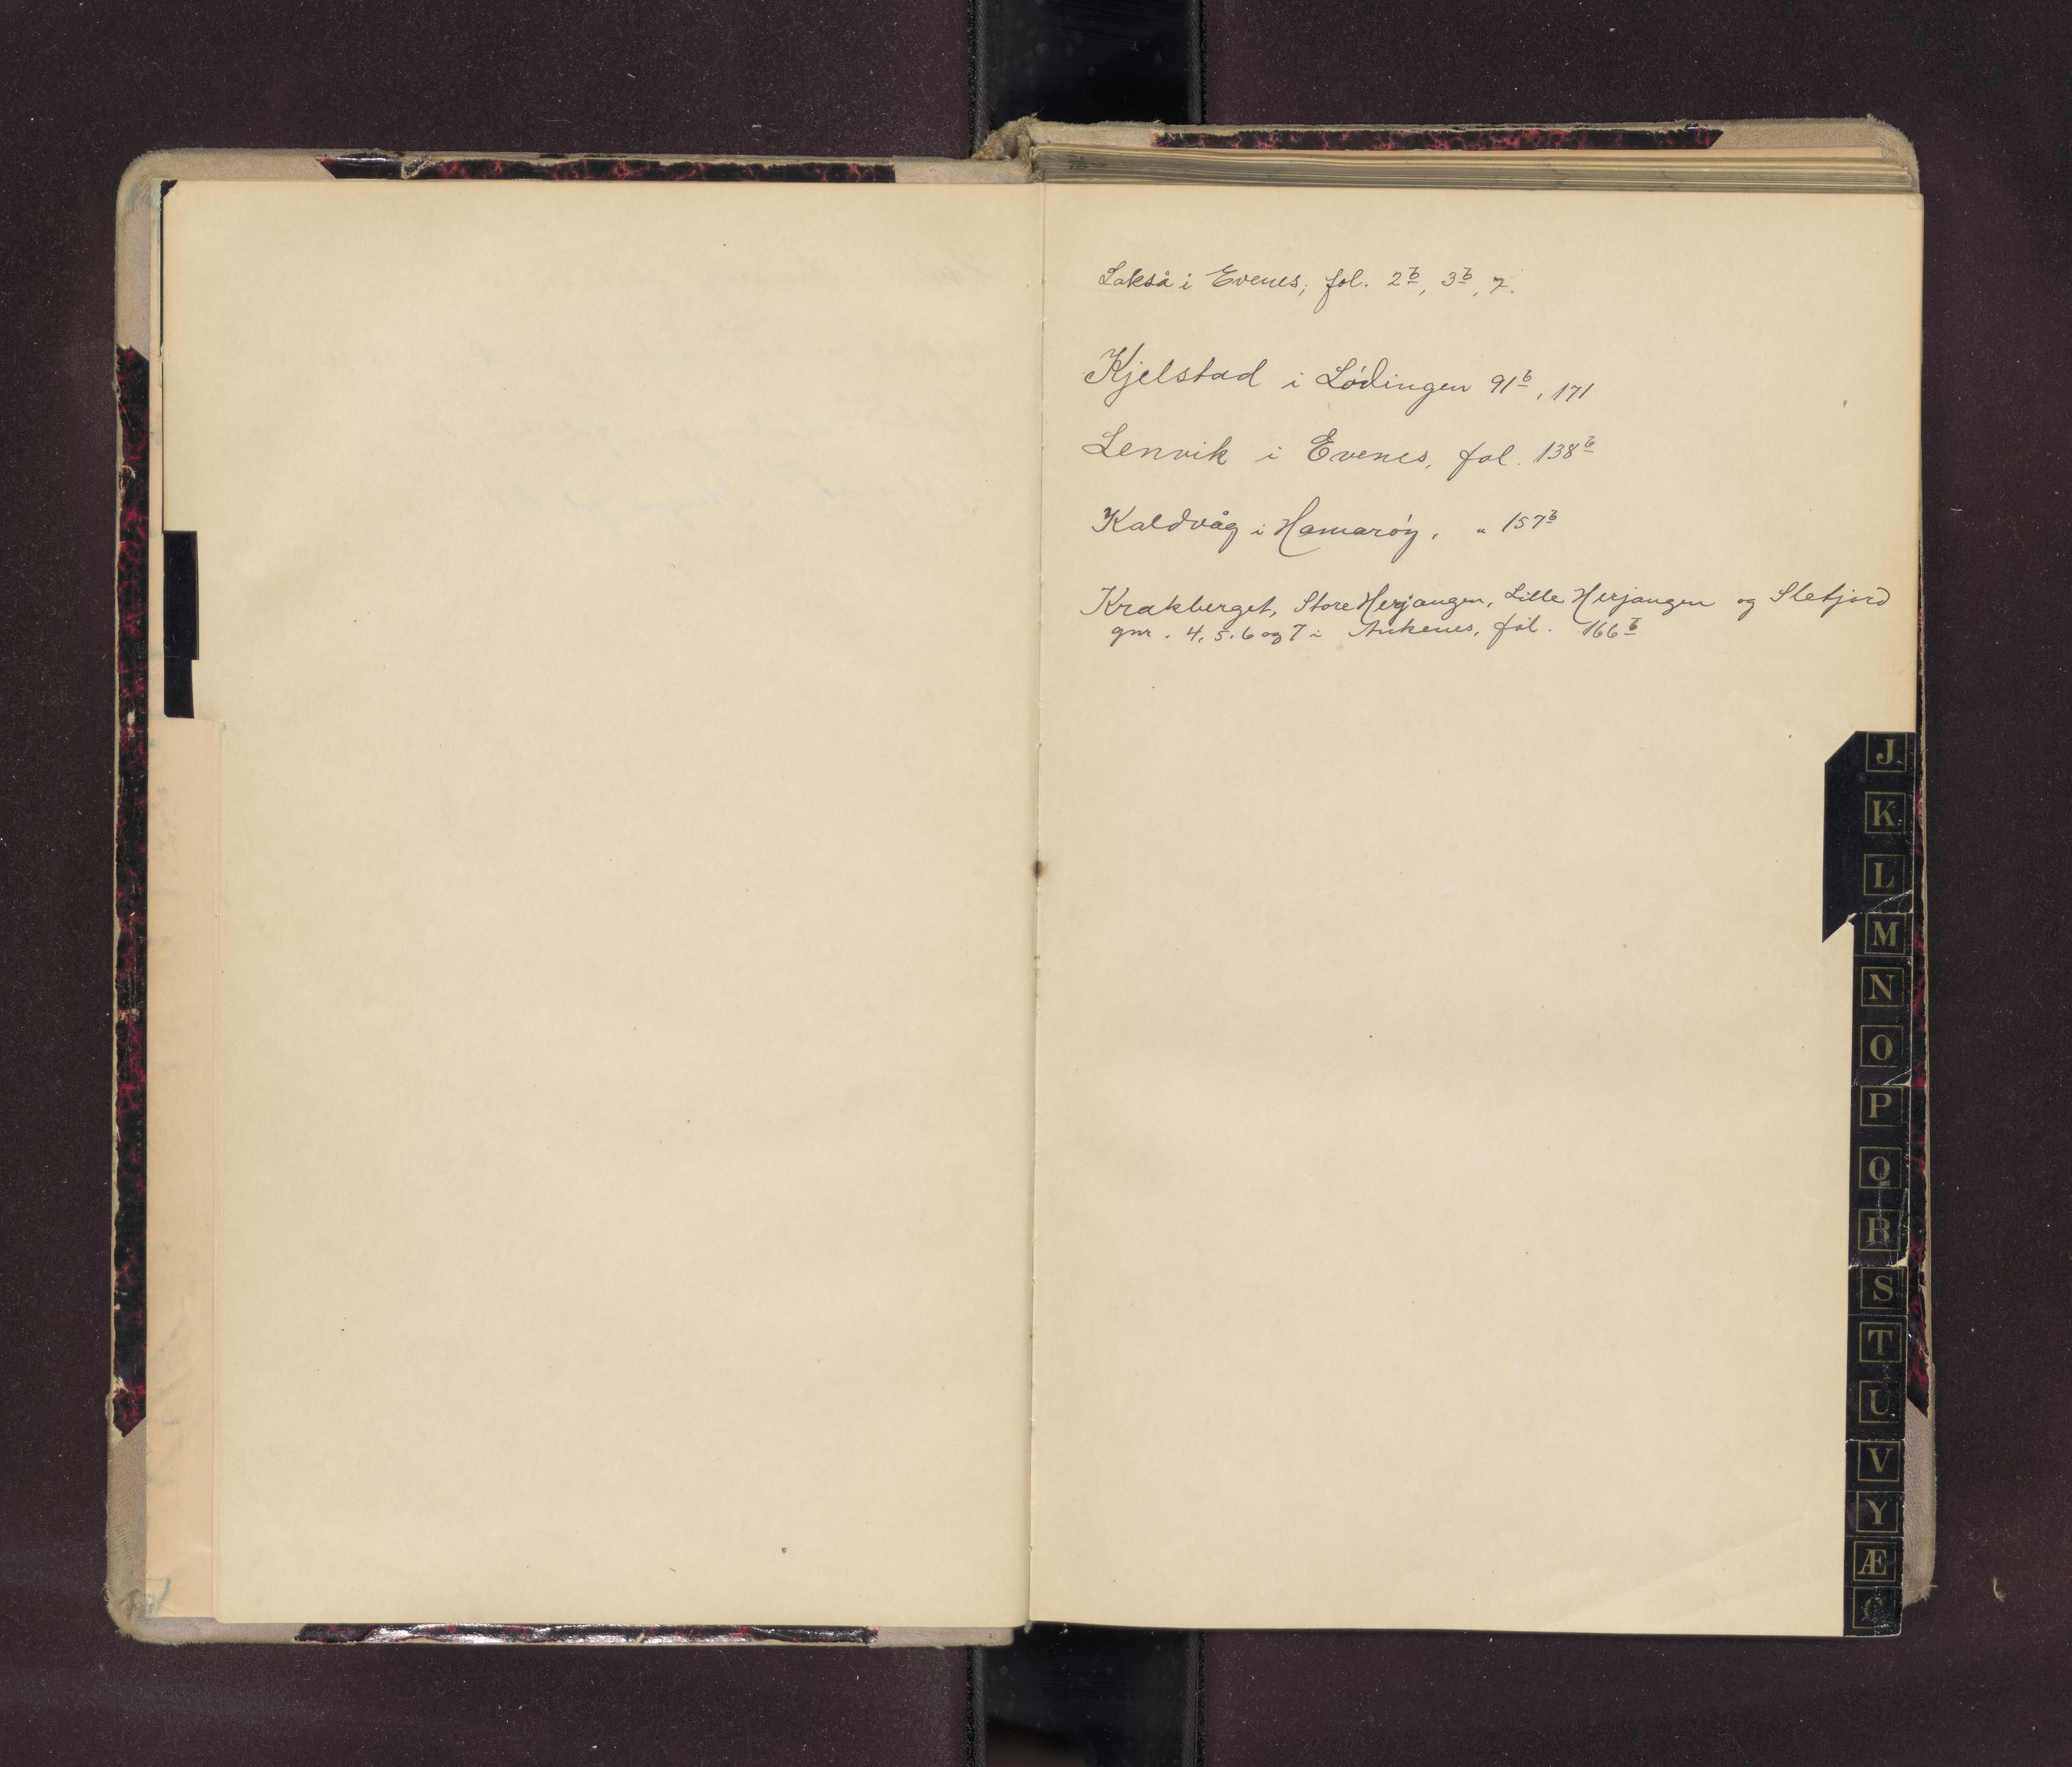 Lakså i Evenes, fol. 2b, 3b, 7.
Kjelstad i Lødingen 91b, 171
Lenvik i Evenes, fol. 138b
Kaldvåg i Hamarøy, " 157b
Krakberget, Store Herjangen, Lille Herjangen og Sletjord
gnr. 4, 5, 6 og 7 i Ankenes, fol. 166b
J
K
L
M
N
O
P
Q
R
S
T
U
V
Y
Æ